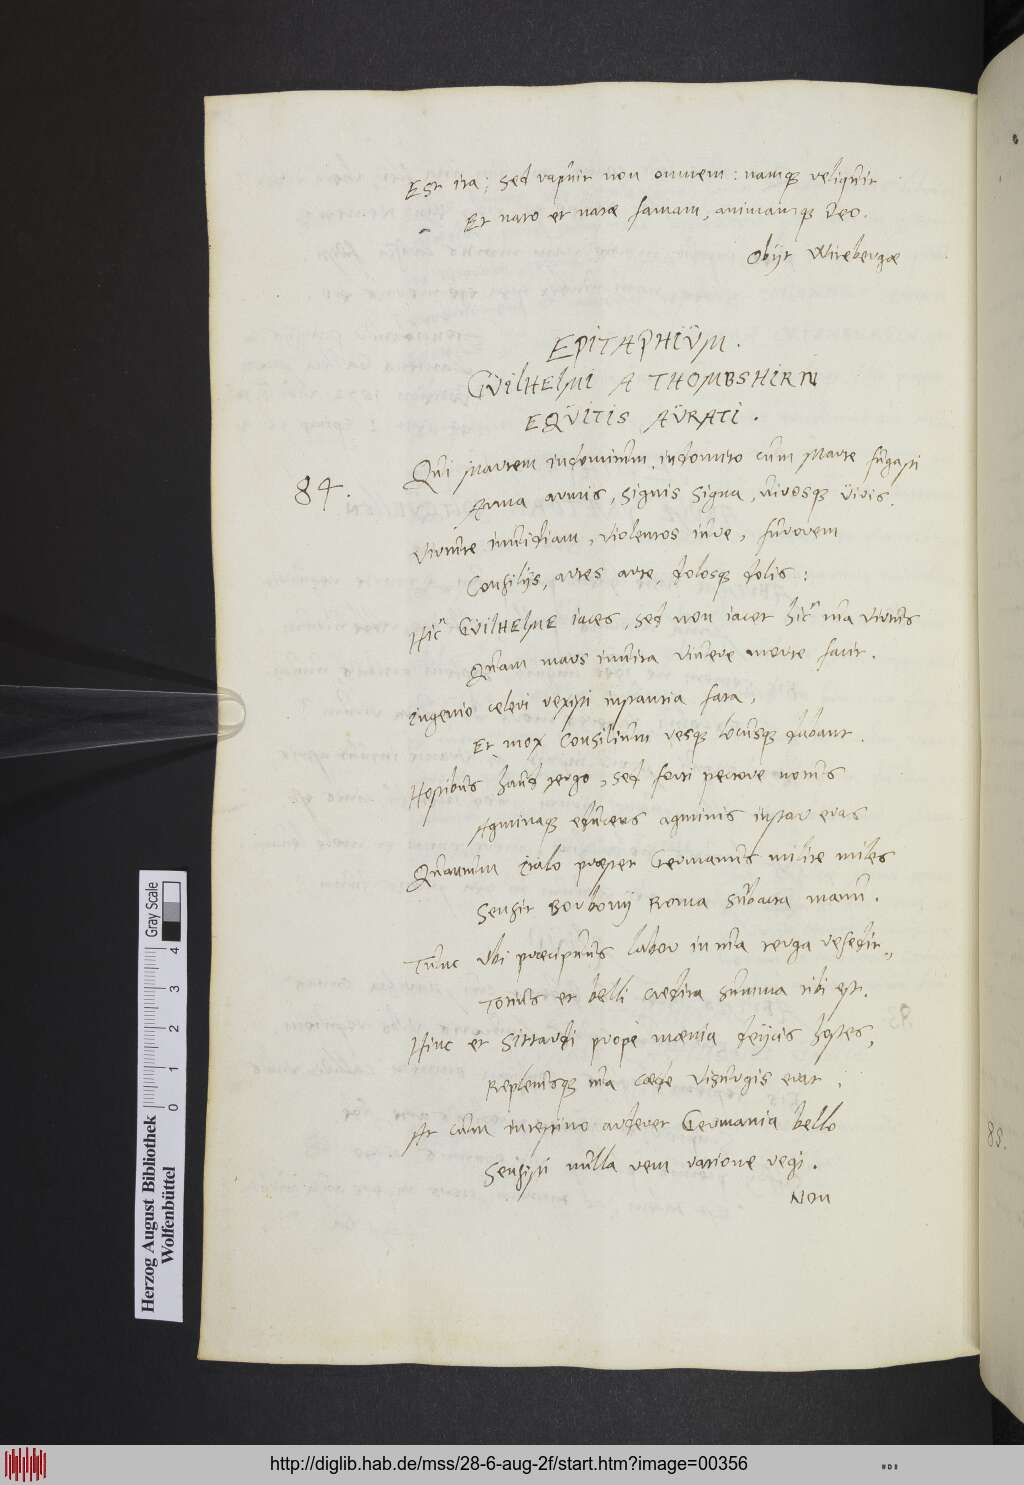 Est ita; sed rapuit non omnem: namq; reliquit
Et nato et natæ famam, animamq; Deo.
Obijt Wirebergæ
EPITAPHIŨM.
GŨILHELMI A THOMBSHIRN
EQŨITIS AŨRATI.
84.
Qui Martem indomitum, indomito cum Marte fugasti
Arma armis, signis signa, virosq; viris.
Virtute inuidiam, violentos iure, furorem
Consilijs, artes arte, dolosq; dolis:
Hic GŨILHELME iaces, sed non iacet hic tua virtus
Quam mars inuita viuere morte facit.
Ingenio celeri rexisti instantia fata,
Et mox Consilium resq; locusq; dabant.
Hostibus haud tergo, sed forti pectore notus
Agminaq; educens agminis instar eras
Quantum Italo præstet Germanus milite miles
Sensit Borbonij Roma subacta manu.
Tunc ubi præcipuus labor in tua terga resedit,
Totus et belli credita summa tibi est.
Hinc et Sittardi prope mœnia deijcis hostes,
Repletusq; tua cæde Visurgis erat.
At cum intestino arderet Germania bello
Sensisti nulla rem ratione regi.
Non
85.
Herzog August Bibliothek
Wolfenbüttel
0 1 2 3 4
Gray Scale
http://diglib.hab.de/mss/28-6-aug-2f/start.htm?image=00356